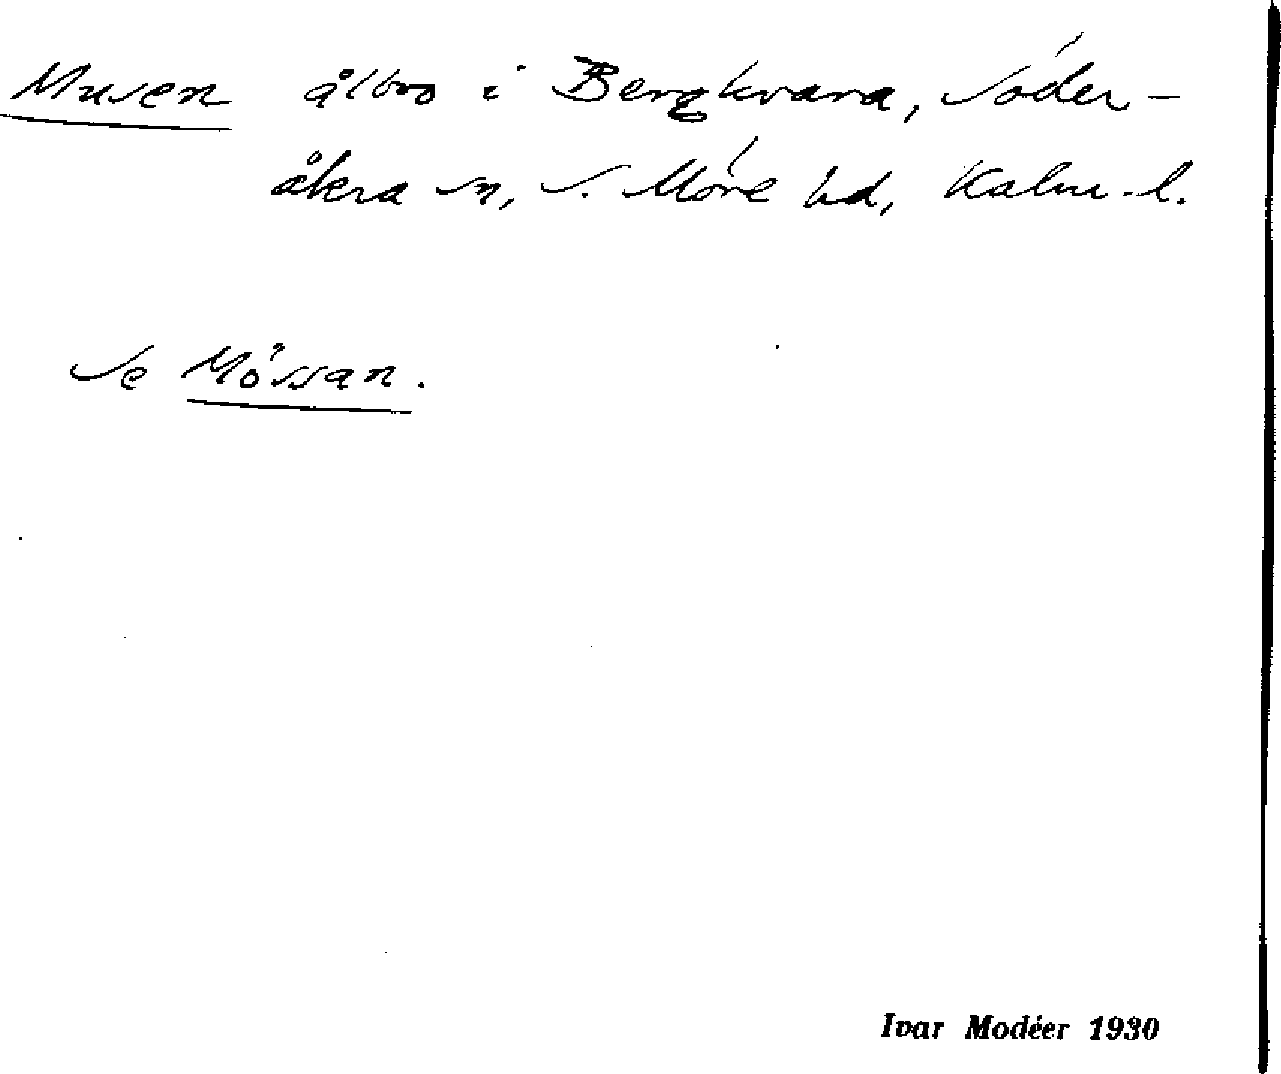 Musen ålbro i Bergkvara, Söder-
åkra sn, S. Möre hd, Kalm. l.
Se Mössan.
Ivar Modéer 1930